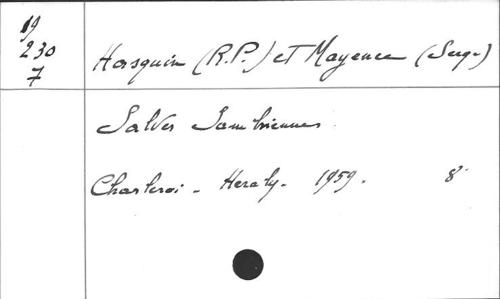 19
230
7
Hasquin (R.P.) et Mayence (Serge)
Salves Sambriennes
Charleroi - Heraly - 1959. 8°